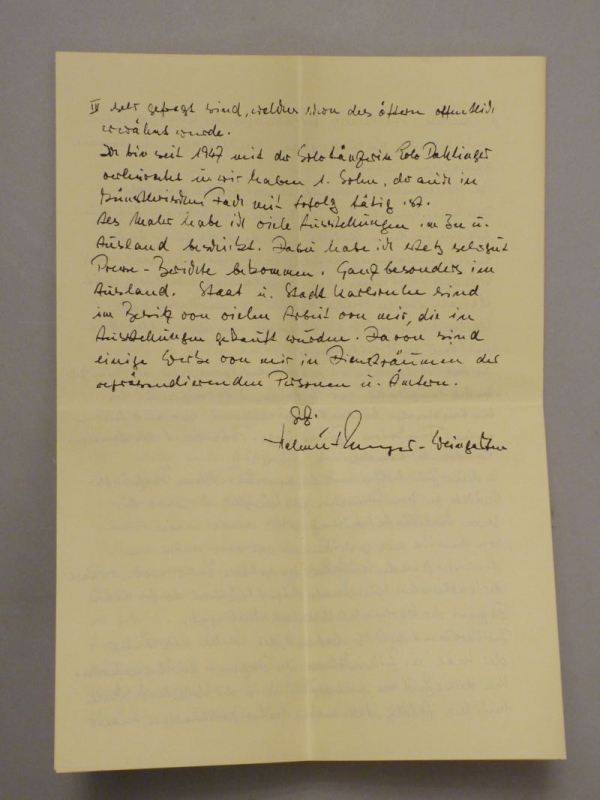 IV sehr gefragt sind, welches schon des öftern öffentlich
erwähnt wurde.
Ich bin seit 1947 mit der Solotänzerin Lolo Dahlinger
verheiratet u. wir haben 1. Sohn, der auch in
künstlerischem Fach mit Erfolg tätig ist.
Als Maler habe ich viele Ausstellungen im In u.
Ausland beschickt. Dabei habe ich stets sehr gut
Presse-Berichte bekommen. Ganz besonders im
Ausland. Staat u. Stadt Karlsruhe sind
im Besitz von vielen Arbeit von mir, die in
Ausstellungen gekauft wurden. Davon sind
einige Werke von mir in Diensträumen der
repräsendierenden Personen u. Ämtern.
Helmut - Weingarten